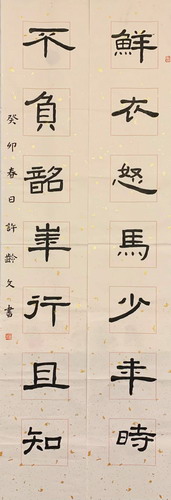 鮮衣怒馬少年時
不負韶華行且知
癸卯春日許齡文書